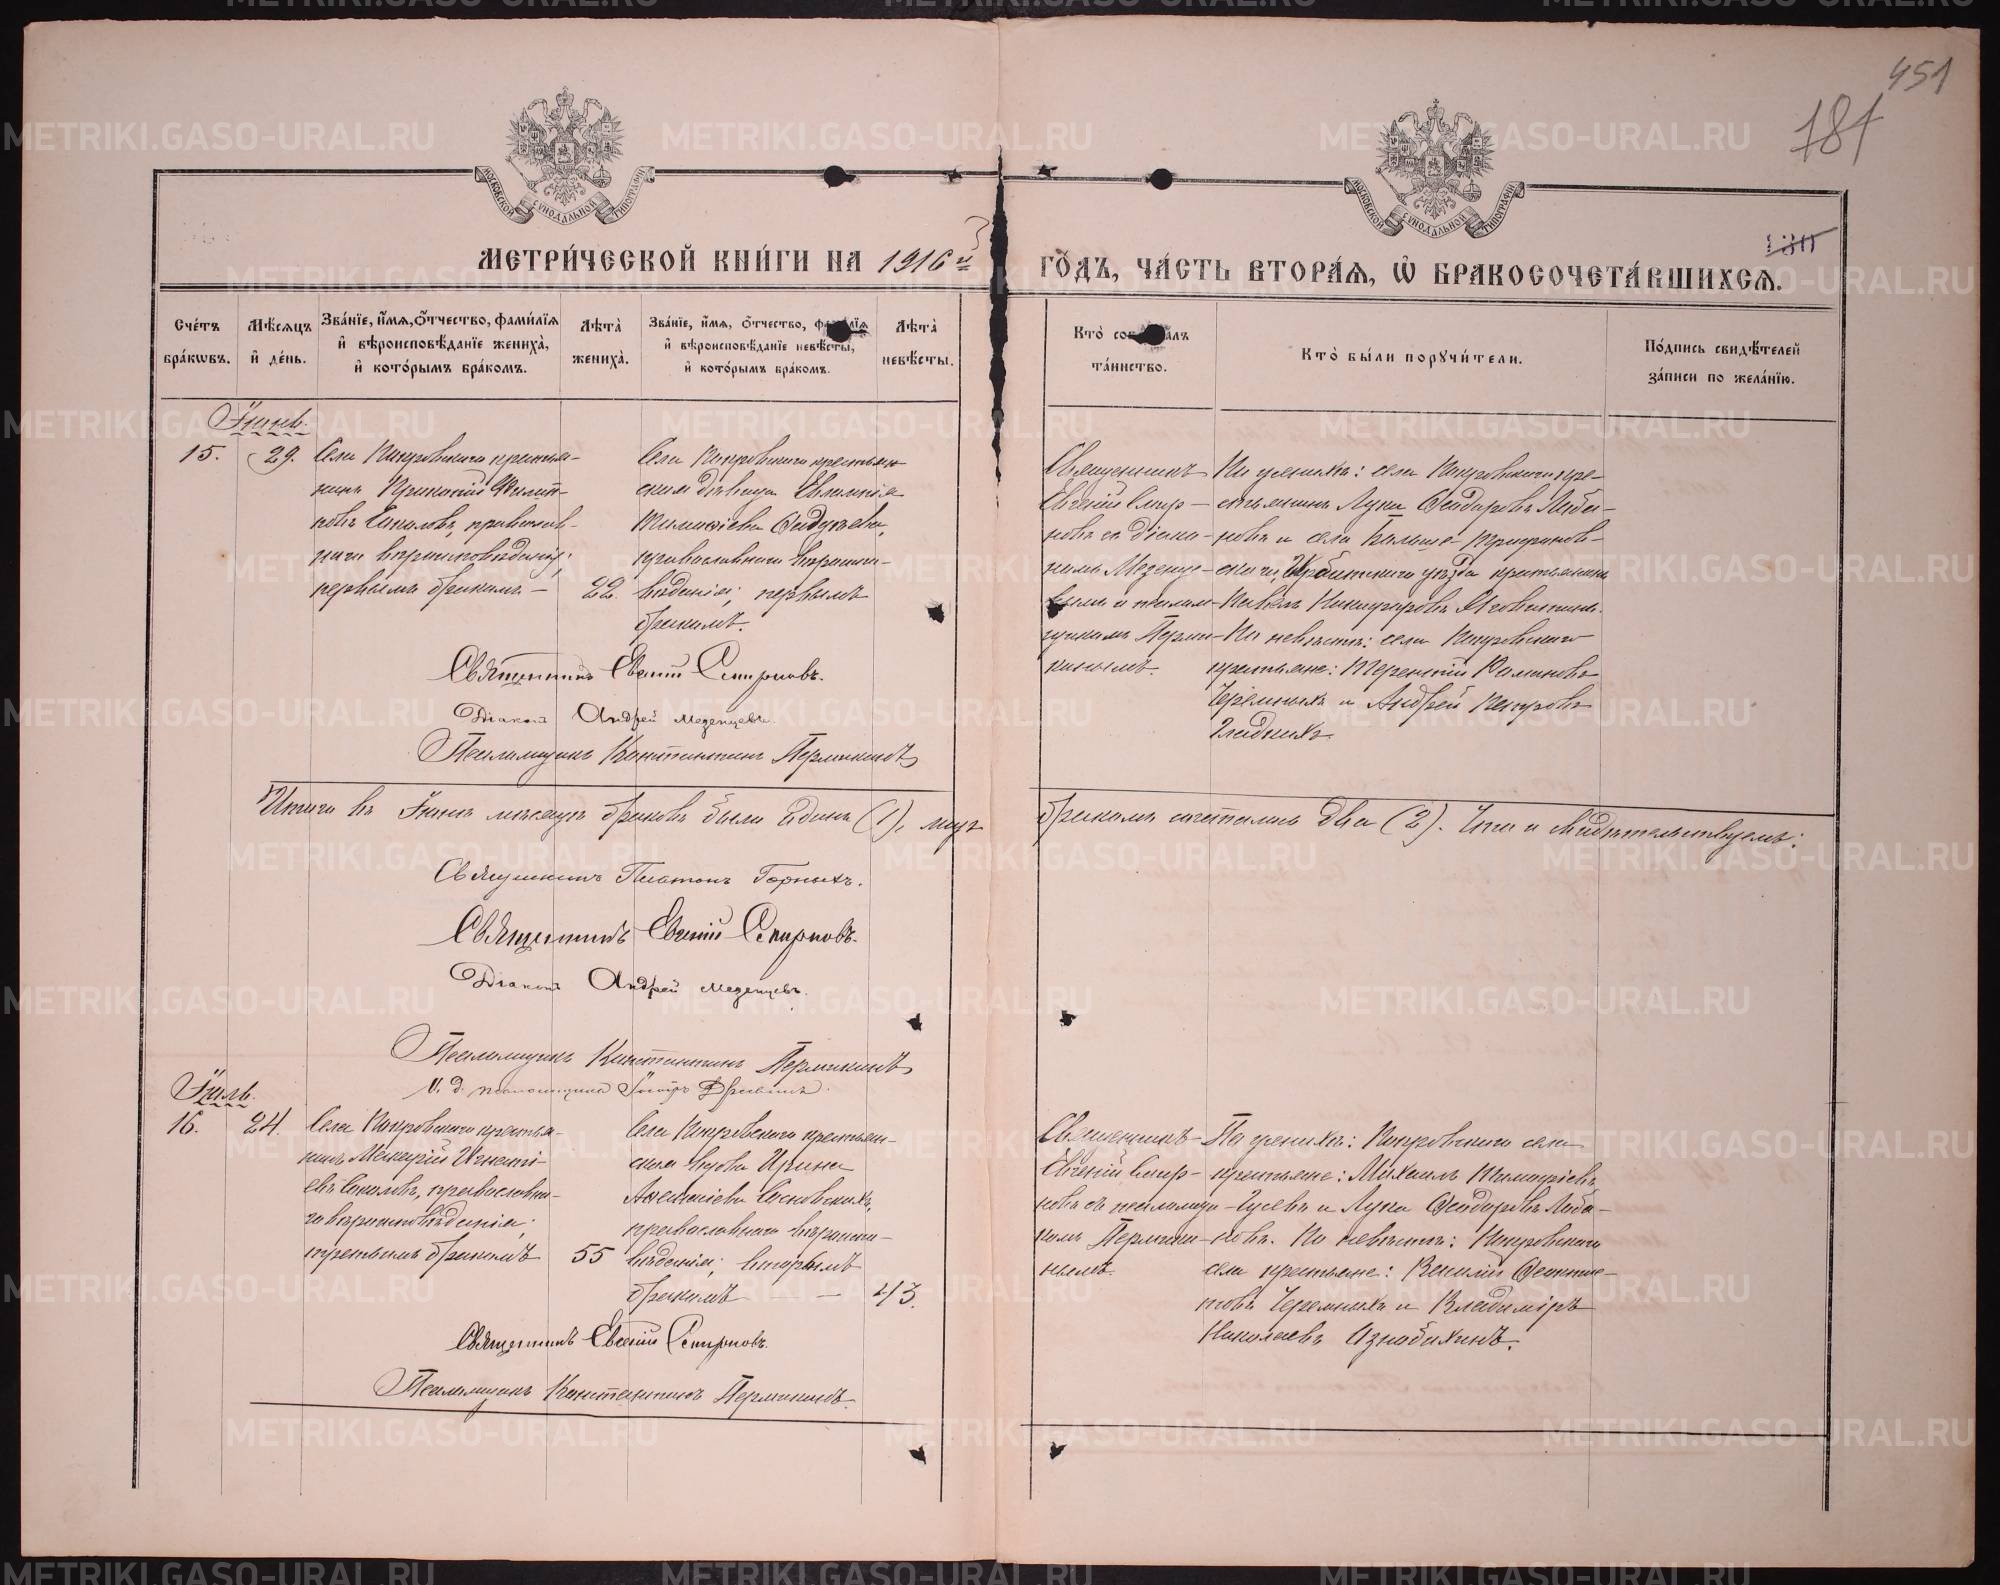 451
181
МЕТРИ́ЧЕСКОЙ КНИ́ГИ НА 1916й ГО́ДЪ, ЧА́СТЬ ВТОРА́Я, Ѽ БРАКОСОЧЕТА́ВШИХСЯ.
МОСКОВСКОЙ СУНОДАЛЬНОЙ ТИПОГРАФІИ
МОСКОВСКОЙ СУНОДАЛЬНОЙ ТИПОГРАФІИ
Сче́тъ бра́кѡвъ.
Мѣ́сяцъ и҆ де́нь.
Зва́нїе, и҆́мя, ѻ҆́тчество, фами́лїя и҆ вѣроисповѣ́данїе жениха̀, и҆ кото́рымъ бра́комъ.
Лѣ́та̀ жениха̀.
Зва́нїе, и҆́мя, ѻ҆́тчество, фами́лїя и҆ вѣроисповѣ́данїе невѣ́сты, и҆ кото́рымъ бра́комъ.
Лѣ́та̀ невѣ́сты.
Кто̀ соверша́лъ та́инство.
Кто̀ бы́ли порꙋчи́тели.
По́дпись свидѣ́телей за́писи по жела́нїю.
Іюнь.
15.
29.
Села Покровскаго крестья-
нинъ Прокопій Филип-
повъ Соколовъ, православ-
наго вѣроисповѣданія;
первымъ бракомъ. –
22.
Села Покровскаго крестьян
ская дѣвица Евлампія
Тимофіева
православнаго вѣроиспо-
вѣданія; первымъ
бракомъ.
Священникъ
Евгеній Смир-
новъ съ діако-
номъ Мезенце-
вымъ и псалом-
щикомъ Перми-
кинымъ.
По женихѣ: села Покровскаго кре-
стьянинъ Лука Ѳеодоровъ Лоба-
новъ и села Больше-Трифонов-
скаго, Ирбитскаго уѣзда крестьянинъ
Павелъ Никифоровъ
По невѣстѣ: села Покровскаго
крестьяне: Терентій
Черемныхъ и Андрей
Гладкихъ
Священникъ Евгеній Смирновъ.
Діаконъ Андрей Мезенцевъ.
Псаломщикъ Константинъ Пермикинъ
Итого въ Іюнѣ мѣсяцѣ браковъ было одинъ (1), лицъ бракомъ сочетались два (2). Что и свидѣтельствуемъ:
Священникъ Платонъ Горныхъ.
Священникъ Евгеній Смирновъ.
Діаконъ Андрей Мезенцевъ.
Псаломщикъ Константинъ Пермикинъ
И. д. псаломщика
Іюль.
16.
24.
Села Покровскаго крестья-
нинъ Меркурій Игнаті-
евъ Соколовъ, православна-
го вѣроисповѣданія;
третьимъ бракомъ
55
Села Покровскаго крестьян-
ская вдова Ирина
Сосновскихъ,
православнаго вѣроиспо-
вѣданія; вторымъ
бракомъ – –
43.
Священникъ
Евгеній Смир-
новъ съ псаломщи-
комъ Пермики-
нымъ.
По женихѣ: Покровскаго села
крестьяне: Михаилъ Тимофіевъ
Гусевъ и Лука Ѳеодоровъ Лоба-
новъ. По невѣстѣ: Покровскаго
села крестьяне: Василій Ѳеоктис-
товъ Черемныхъ и Владиміръ
Николаевъ Азнабихинъ.
Священникъ Евгеній Смирновъ.
Псаломщикъ Константинъ Пермикинъ.
METRIKI.GASO-URAL.RU